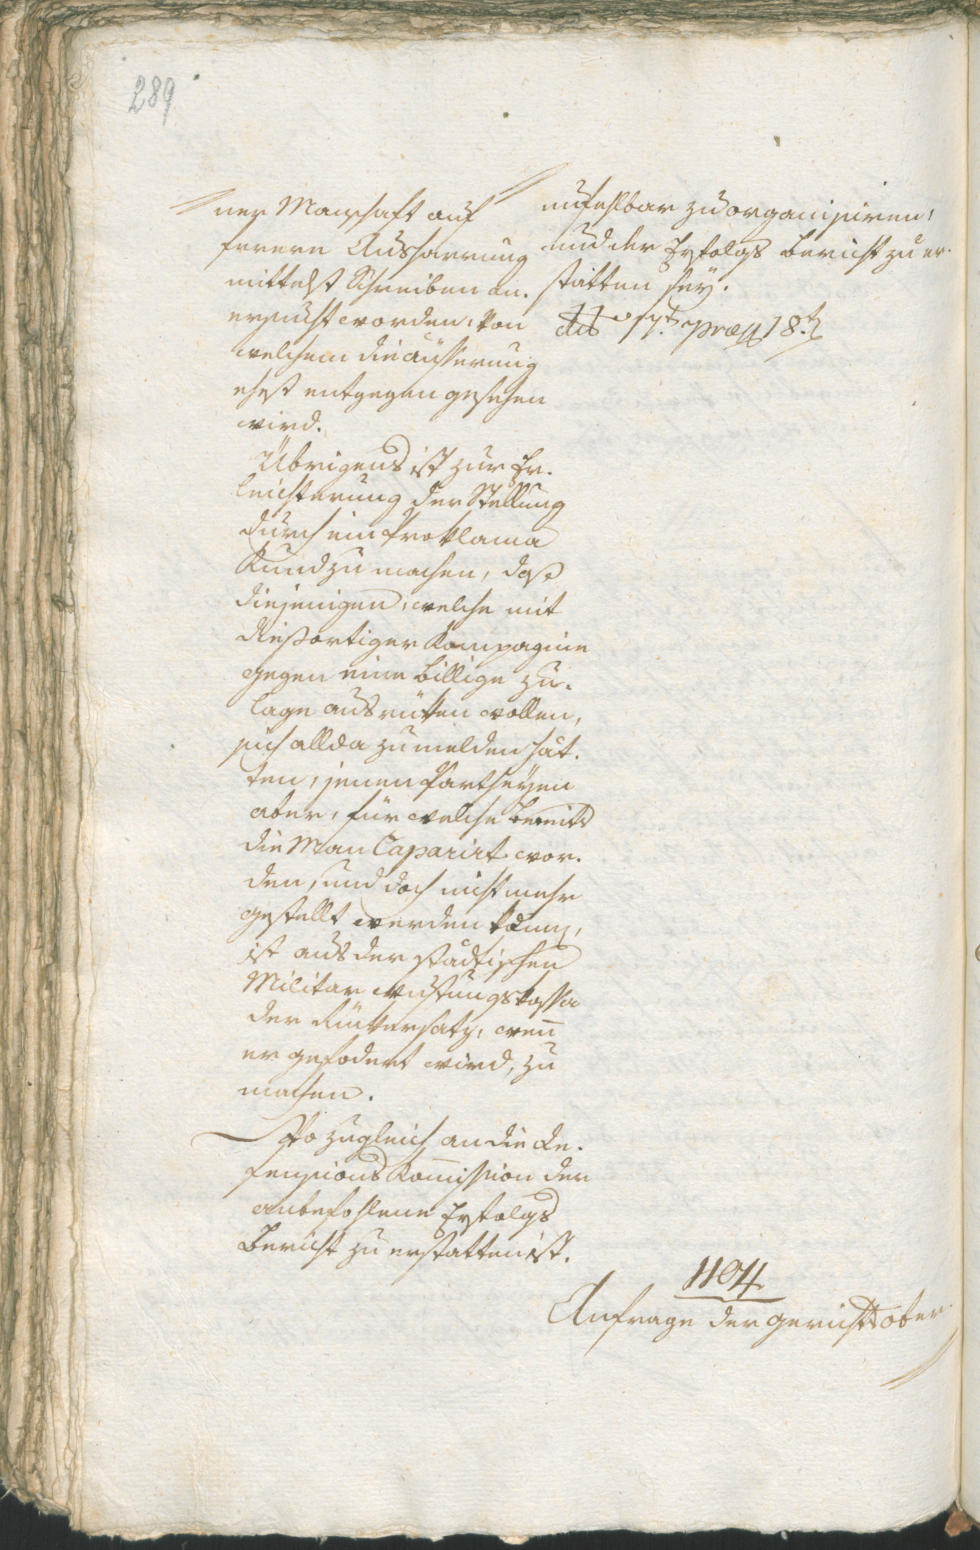 289
ner Manschaft auf
fernere Ausharrung
mittelst Schreiben an-
ersucht worden: von
welchem die äusserung
ehest entgegen gesehen
wird.
Übrigens ist zur Er-
leichterung der Stellung
durch ein Proklama
Kund zu machen, daß
diejenigen, welche mit
diesortiger Kompagnie
gegen eine billige Zu-
lage ausrücken wollen,
sich allda zu melden hät-
ten, jenen Partheyen
aber, für welche bereits
die Man Caparirt wor-
den, und doch nicht mehr
gestellt werden könn,
ist aus der städtischen
Militar rüstungskassa
der Rückersatz, wen̄
er gefodert wird, zu
machen.
Wo zugleich an die De-
fensions Kom̄ission der
anbefohlene Erfolgs
Bericht zu erstatten ist.
unfehlbar zu organisiren,
und der Erfolgs bericht zu er-
statten sey.
dto 17t. præs 18.t
1104
Anfrage der Gerichts ober-